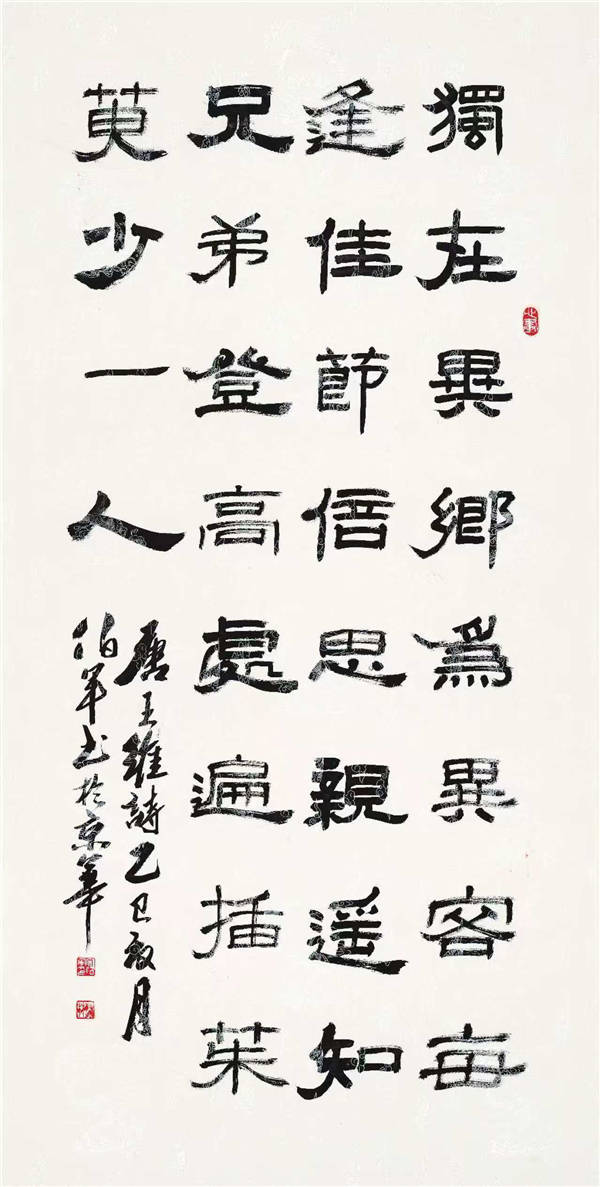 獨在異鄉爲異客每
逢佳節倍思親遥知
兄弟登高處遍插茱
萸少一人
唐王維詩乙巳月
伯军书於京華